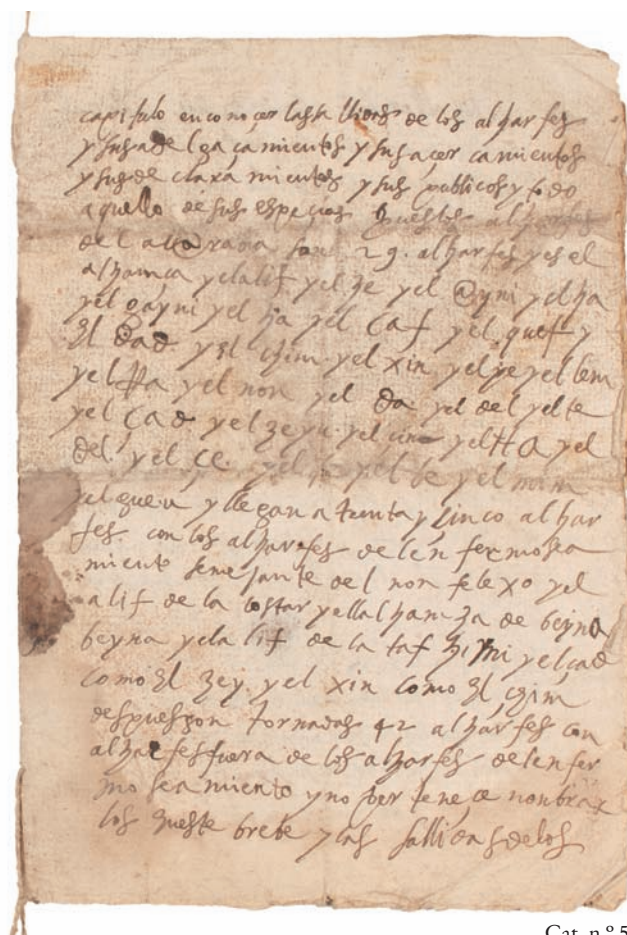 capitulo en conoçer las sallidas de los alharfes
y sus adelgaçamientos y sus açercamientos
y sus declaramientos y sus publicos y todo
aquello de sus espeçias questos alharfes
del alaarabia son 29. alharfes yes el
alhamça yelalif yel he yel ayni yel ha
yel gayni yel ha yel caf yel quef y
El dad. yel chim. yel xin yel ye yel lem
yel rra yel non yel da yel del yel te
yel çad yel zeyu. yel çine yel tta yel
del. yel çe. yel yel be yel mim
yel queu y llegan a trenta y sinco alhar
fes. con los alharfes de lenfermosea
miento semejante del non felexo yel
alif de la costar yellalhamza de beyna
beyna yelalif de la tafhimi yel çad
como El zey. yel xin como El chim
despues son tornados 42 alharfes con
alharfes fuera de los alharfes delenfer
moseamiento y no perteneçe nonbrar
los queste brebe y las sallidas de los
Cat. n.º 5